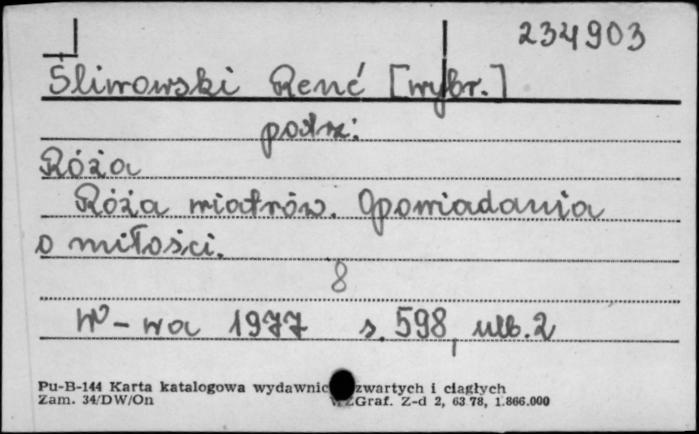 234903
Śliwowski René [wybr.]
patrz:
Róża
Róża wiatrów. Opowiadania
o miłości.
8
W-wa 1977 s. 598, nlb. 2
Pu-B-144 Karta katalogowa wydawnic zwartych i ciągłych
Zam. 34/DW/On WZGraf. Z-d 2, 63 78, 1.866.000